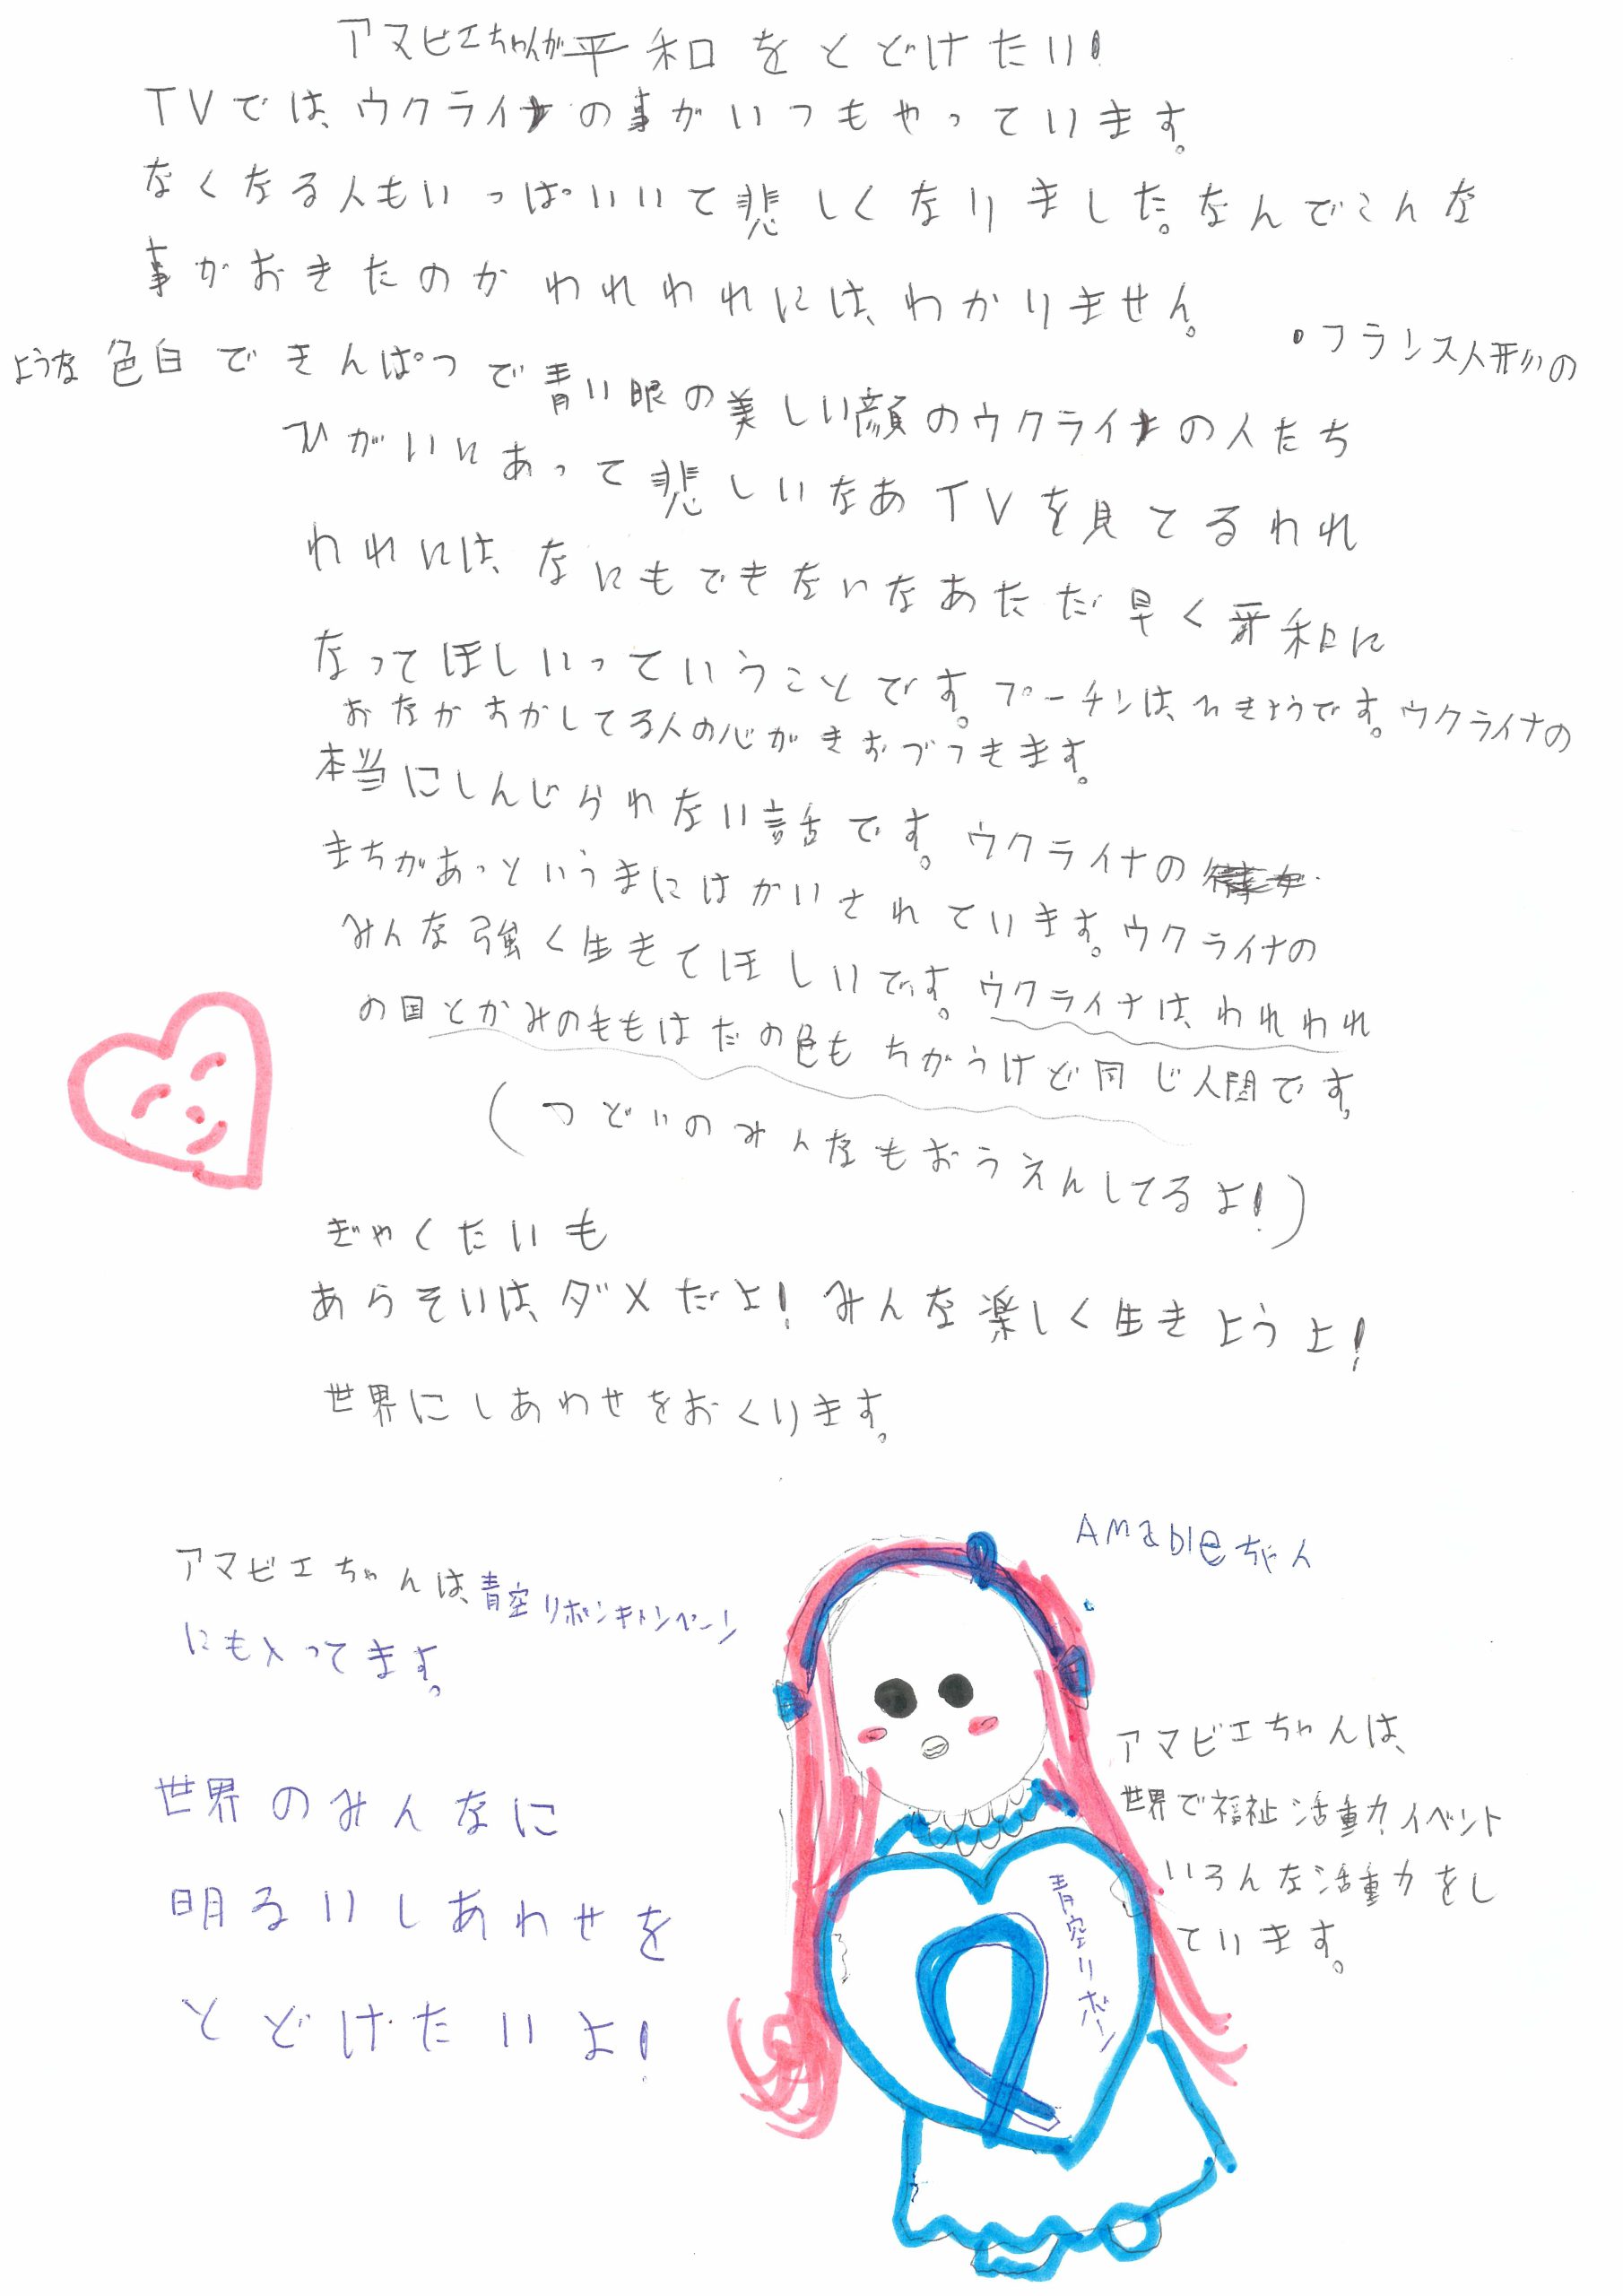 アマビエちゃんが平和をとどけたい!
TVでは、ウクライナの事がいつもやっています。
なくなる人もいっぱいいて悲しくなりました。なんでこんな
事がおきたのかわれわれには、わかりません。
・フランス人形の
ような色白できんぱつで青い眼の美しい顔のウクライナの人たち
ひがいにあって悲しいなあTVを見てるわれ
われには、なにもできないなあただ早く平和に
なってほしいっていうことです。プーチンは、ひきょうです。ウクライナの
おなかすかしてる人の心がきおづつきます。
本当にしんじられない話です。ウクライナの
まちがあっというまにはかいされています。ウクライナの
みんな強く生きてほしいです。ウクライナは、われわれ
の国とかみのももはだの色もちがうけど同じ人間です。
(つどいのみんなもおうえんしてるよ!)
ぎゃくたいも
あらそいは、ダメだよ!みんな楽しく生きようよ!
世界にしあわせをおくります。
Amableちゃん
アマビエちゃんは、青空リボンキャンペーン
にも入ってます。
世界のみんなに
明るいしあわせを
とどけたいよ!
アマビエちゃんは、
世界で福祉活動、イベント
いろんな活動をし
ています。
青空リボーン